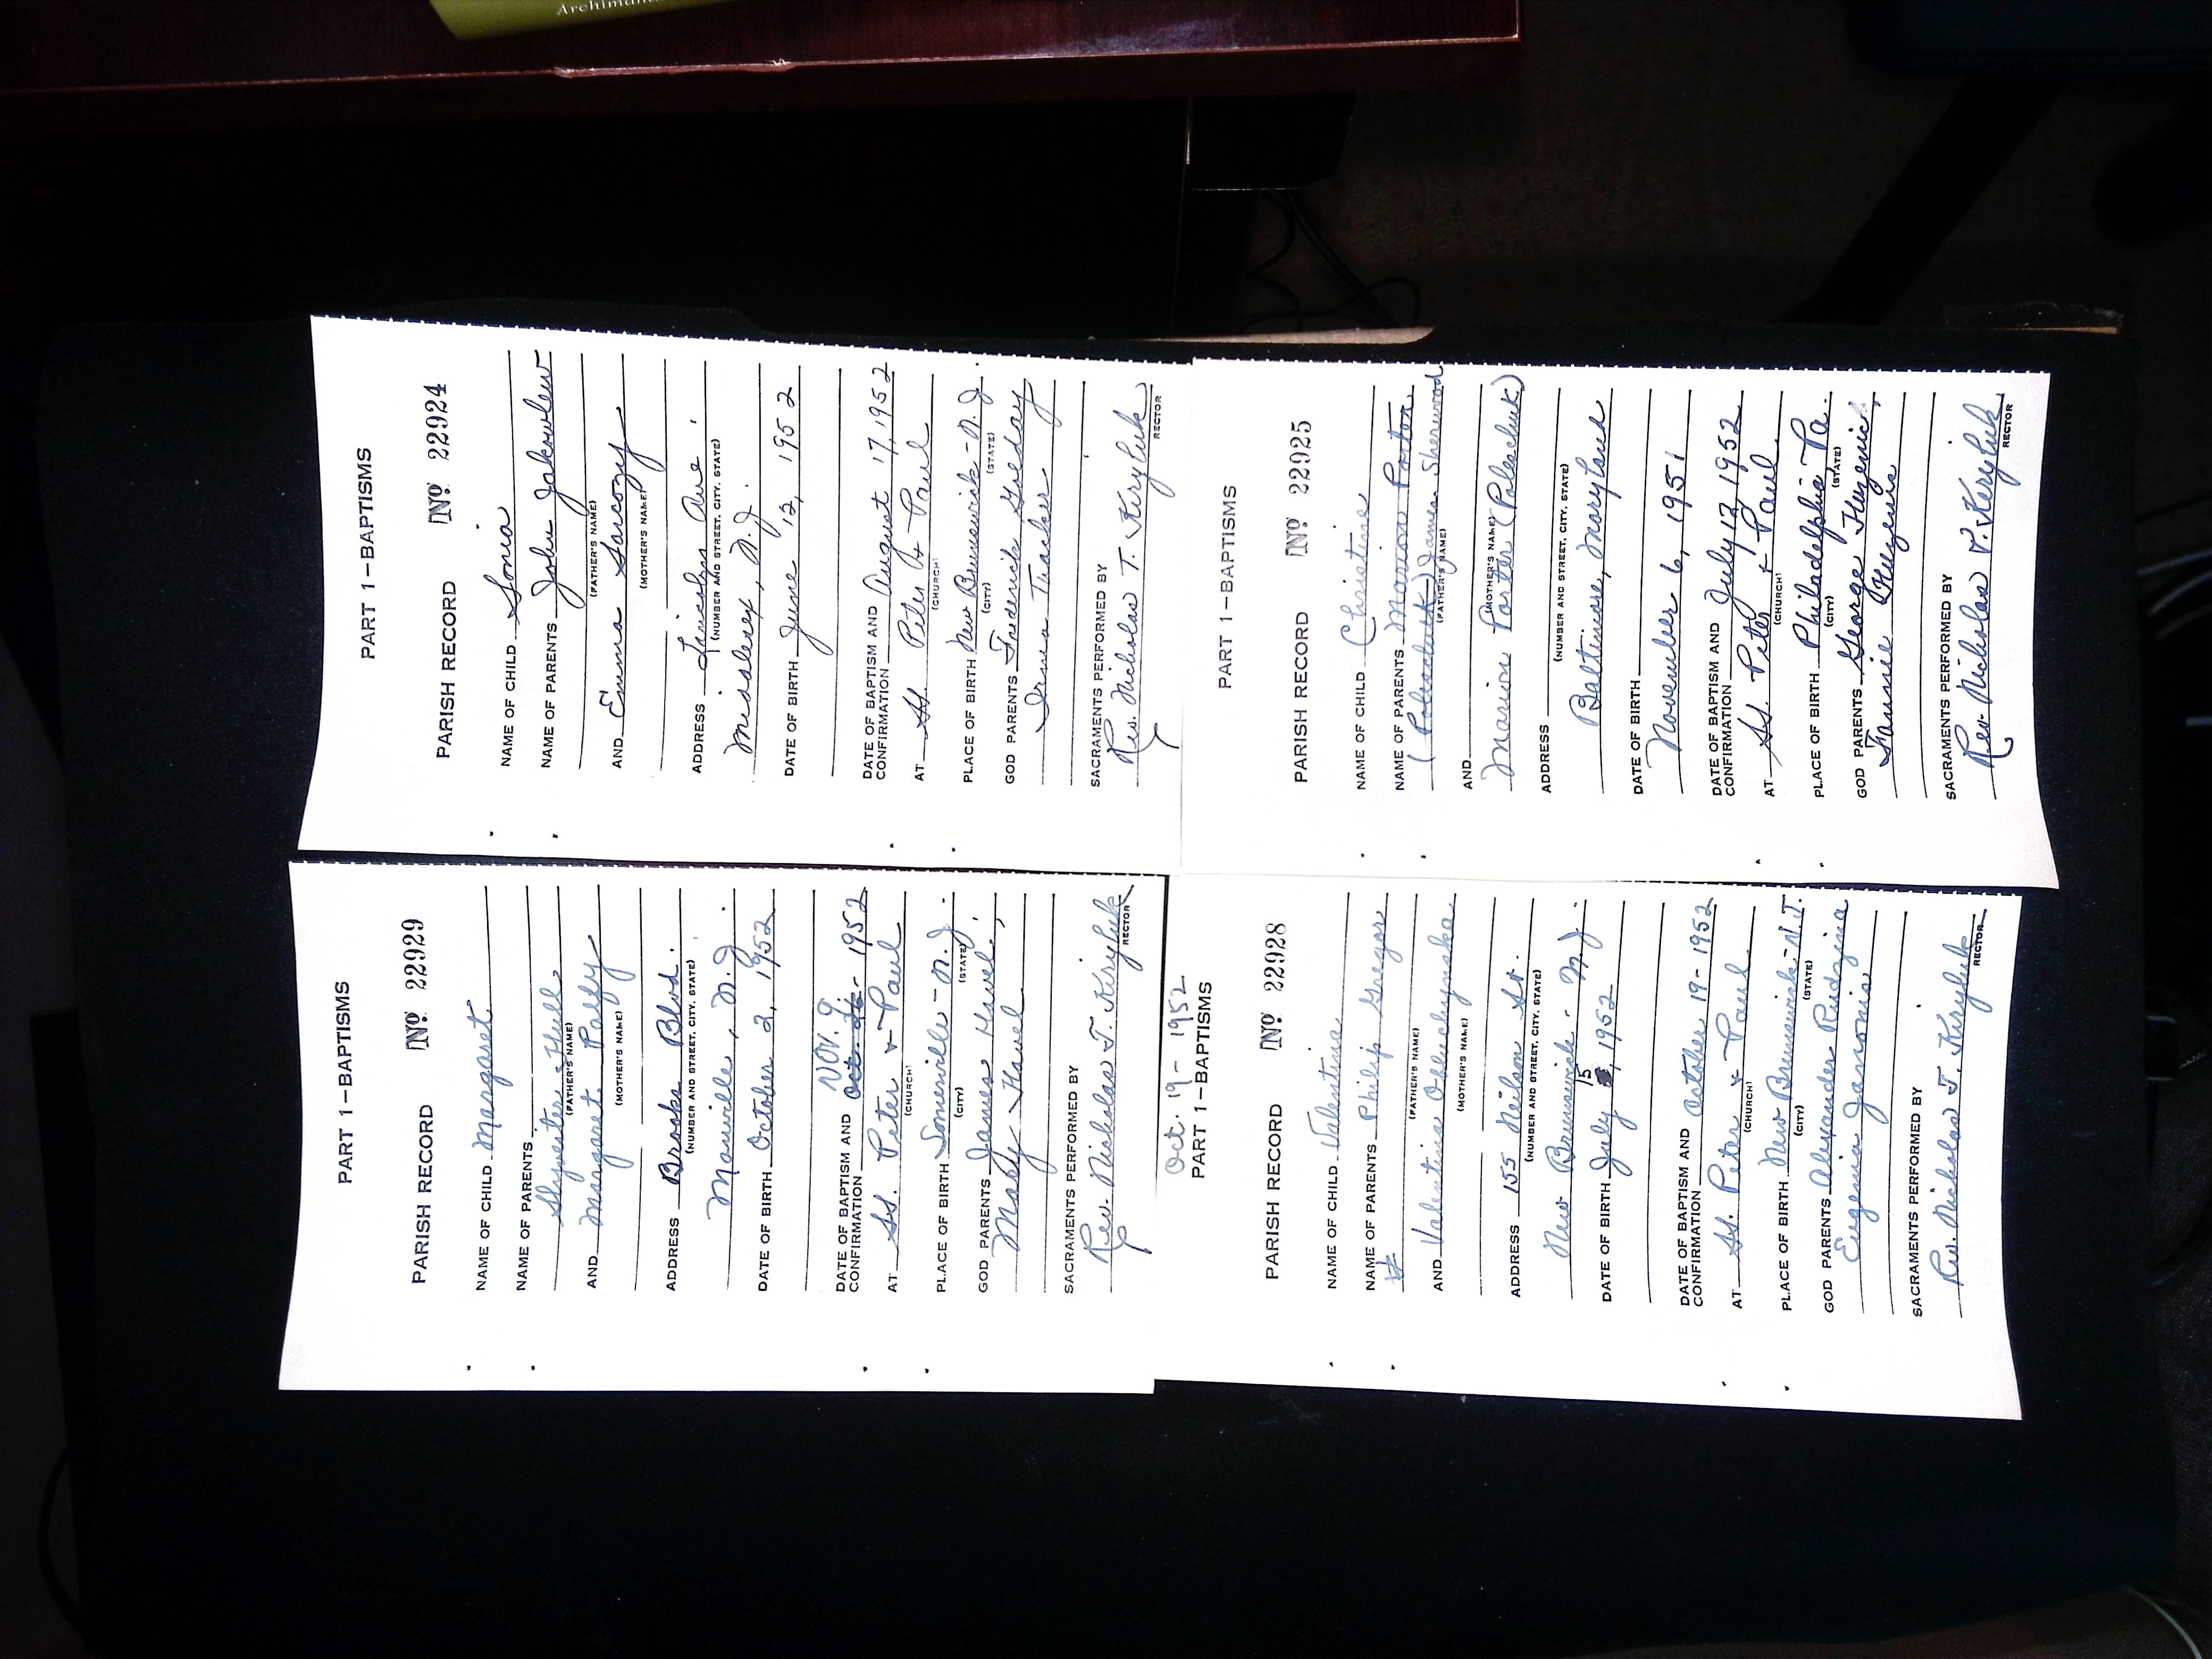 PART 1—BAPTISMS
PARISH RECORD No 22929
NAME OF CHILD Margaret
NAME OF PARENTS
Slyvester Hull
(FATHER'S NAME)
AND Margaret Palfy
(MOTHER'S NAME)
ADDRESS Brooks Blvd.
(NUMBER AND STREET, CITY, STATE)
Manville, N.J.
DATE OF BIRTH October 2, 1952
NOV. 9.
DATE OF BAPTISM AND
CONFIRMATION Oct. 26 - 1952
AT SS. Peter & Paul
(CHURCH)
PLACE OF BIRTH Somerville - N.J.
(CITY) (STATE)
GOD PARENTS James Havel,
Mary Havel
SACRAMENTS PERFORMED BY
Rev. Nicholas T. Kiryluk
RECTOR
PART 1—BAPTISMS
PARISH RECORD No 22924
NAME OF CHILD Sonia
NAME OF PARENTS John Jakowlew
(FATHER'S NAME)
AND Emma Sarcozy
(MOTHER'S NAME)
ADDRESS Lincoln Ave
(NUMBER AND STREET, CITY, STATE)
Middlesex, N.J.
DATE OF BIRTH June 12, 1952
DATE OF BAPTISM AND
CONFIRMATION August 17, 1952
AT SS. Peter & Paul
(CHURCH)
PLACE OF BIRTH New Brunswick - N.J.
(CITY) (STATE)
GOD PARENTS Frederick Golday
Irma Thacker
SACRAMENTS PERFORMED BY
Rev. Nicholas T. Kiryluk
RECTOR
Oct. 19 - 1952
PART 1—BAPTISMS
PARISH RECORD No 22928
NAME OF CHILD Valentina
NAME OF PARENTS Philip Gregor
(FATHER'S NAME)
AND Valentina Obluchynska
(MOTHER'S NAME)
ADDRESS 155 Neilson St.
(NUMBER AND STREET, CITY, STATE)
New Brunswick - N.J.
15
DATE OF BIRTH July , 1952
DATE OF BAPTISM AND
CONFIRMATION October 19 - 1952
AT SS. Peter & Paul
(CHURCH)
PLACE OF BIRTH New Brunswick - N.J.
(CITY) (STATE)
GOD PARENTS Alexander Rudzina
Eugenia Janonis
SACRAMENTS PERFORMED BY
Rev. Nicholas T. Kiryluk
RECTOR
PART 1—BAPTISMS
PARISH RECORD No 22925
NAME OF CHILD Christine
NAME OF PARENTS Marion Porter
(Poleschuk) James Sherwood
(FATHER'S NAME)
AND
(MOTHER'S NAME)
Marion Porter (Poleschuk)
ADDRESS
(NUMBER AND STREET, CITY, STATE)
Baltimore, Maryland
DATE OF BIRTH
November 6, 1951
DATE OF BAPTISM AND
CONFIRMATION July 12, 1952
AT SS. Peter & Paul
(CHURCH)
PLACE OF BIRTH Philadelphia, Pa.
(CITY) (STATE)
GOD PARENTS George Huzenic,
Fannie Huzenic
SACRAMENTS PERFORMED BY
Rev. Nicholas T. Kiryluk
RECTOR